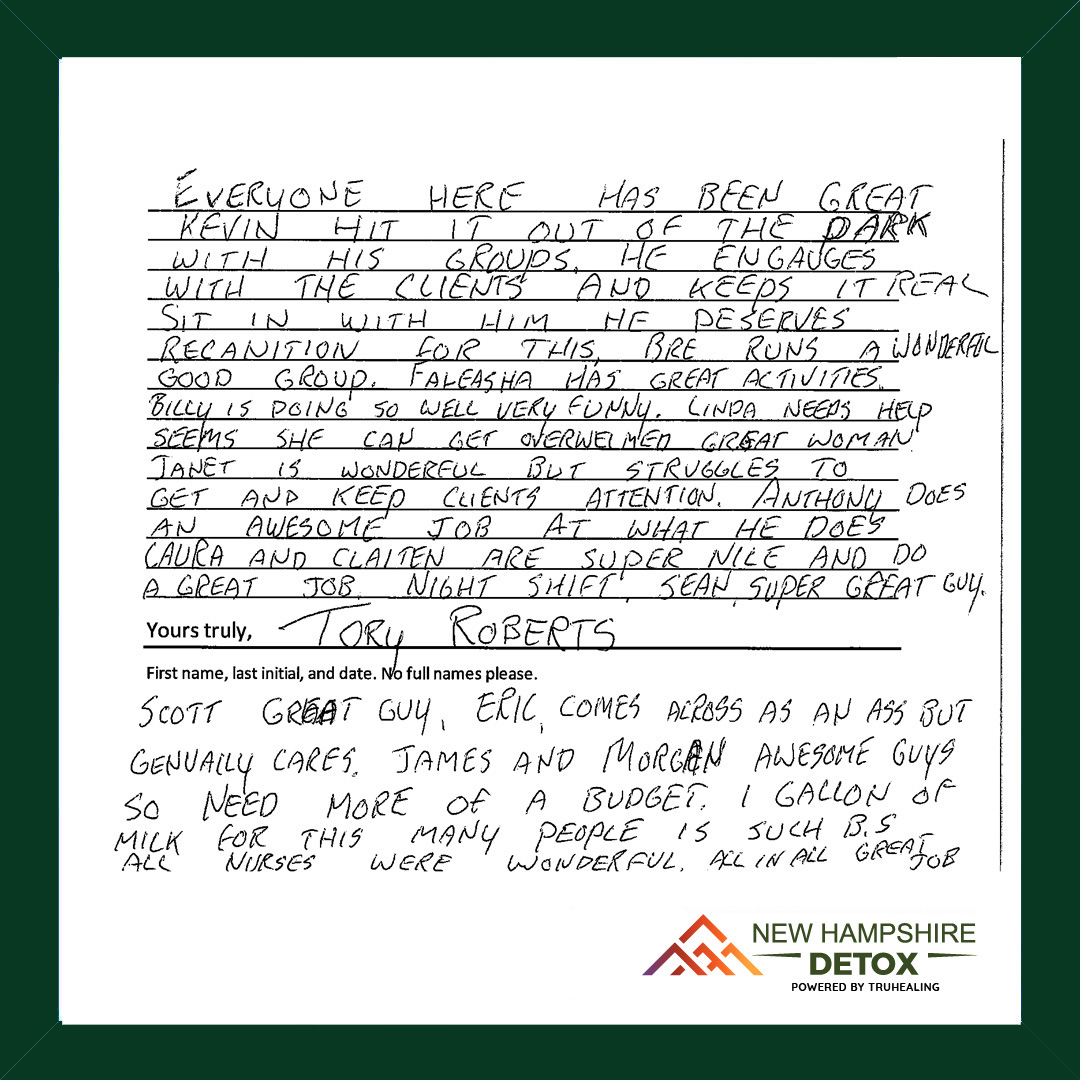 EVERYONE HERE HAS BEEN GREAT
KEVIN HIT IT OUT OF THE PARK
WITH HIS GROUPS. HE ENGAUGES
WITH THE CLIENTS AND KEEPS IT REAL
SIT IN WITH HIM HE DESERVES
RECANITION FOR THIS. BRE RUNS A WONDERFUL
GOOD GROUP. FALEASHA HAS GREAT ACTIVITIES.
BILLY IS DOING SO WELL VERY FUNNY. LINDA NEEDS HELP
SEEMS SHE CAN GET OVERWELMED GREAT WOMAN
JANET IS WONDERFUL BUT STRUGGLES TO
GET AND KEEP CLIENTS ATTENTION. ANTHONY DOES
AN AWESOME JOB AT WHAT HE DOES
LAURA AND CLAITEN ARE SUPER NICE AND DO
A GREAT JOB. NIGHT SHIFT. SEAN, SUPER GREAT GUY.
Yours truly, TORY ROBERTS
First name, last initial, and date. No full names please.
SCOTT GREAT GUY, ERIC, COMES ACROSS AS AN ASS BUT
GENUALLY CARES. JAMES AND MORGAN AWESOME GUYS
SO NEED MORE OF A BUDGET. 1 GALLON OF
MILK FOR THIS MANY PEOPLE IS SUCH B.S
ALL NURSES WERE WONDERFUL. ALL IN ALL GREAT JOB
NEW HAMPSHIRE
DETOX
POWERED BY TRUHEALING